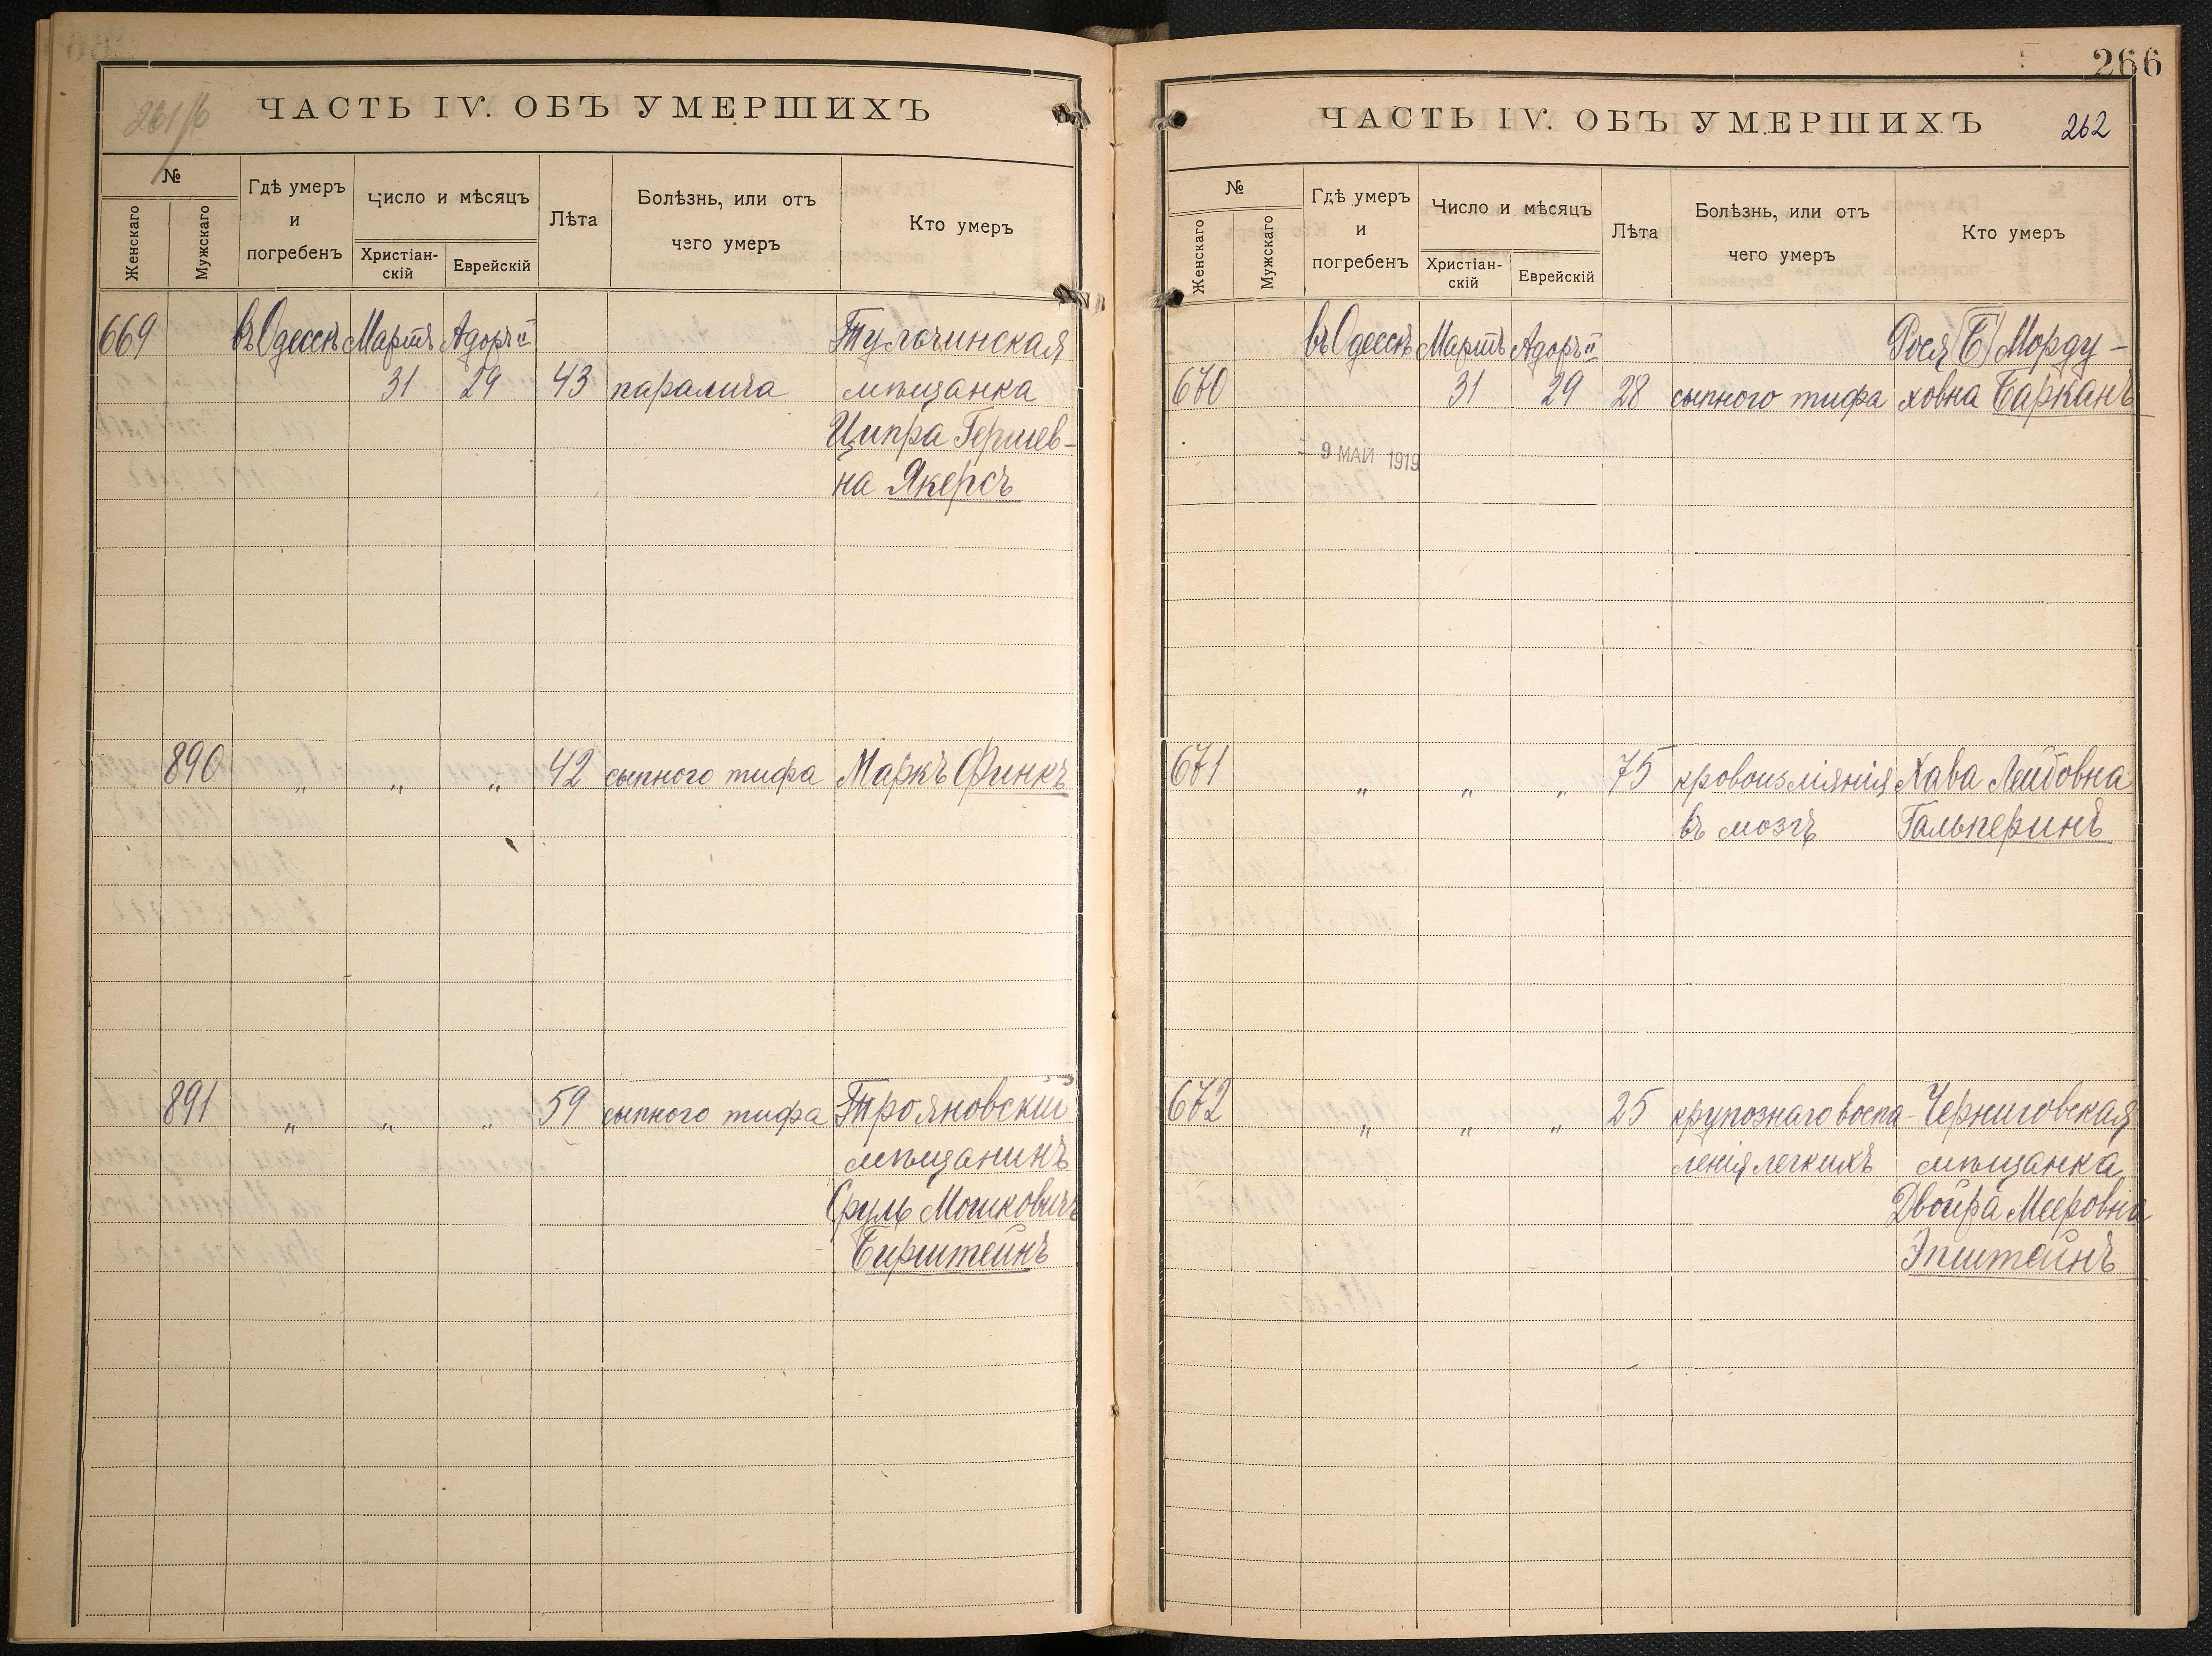 261/б
ЧАСТЬ IV. ОБЪ УМЕРШИХЪ
№
Женскаго
Мужскаго
Гдѣ умеръ
и
погребенъ
Число и мѣсяцъ
Христіан-
скій
Еврейскій
Лѣта
Болѣзнь, или отъ
чего умеръ
Кто умеръ
669 въ Одессѣ Мартъ Адоръ II Тульчинская
31 29 43 паралича мѣщанка
Ципра Гершев-
на Якерсъ
890 „ „ „ 42 сыпного тифа Маркъ Финкъ
891 „ „ „ 59 сыпного тифа Трояновскій
мѣщанинъ
Сруль Мошковичъ
Бирштейнъ
266
ЧАСТЬ IV. ОБЪ УМЕРШИХЪ 262
№
Женскаго
Мужскаго
Гдѣ умеръ
и
погребенъ
Число и мѣсяцъ
Христіан-
скій
Еврейскій
Лѣта
Болѣзнь, или отъ
чего умеръ
Кто умеръ
въ Одессѣ Мартъ Адоръ II Рося (Б) Морду-
670 31 29 28 сыпного тифа ховна Барканъ
9 МАЙ 1919
671 „ „ „ 75 кровоизліянія Хава Лейбовна
въ мозгъ Гальперинъ
672 „ „ „ 25 крупознаго воспа- Черниговская
ленія легкихъ мѣщанка
Двойра Мееровна
Эпштейнъ